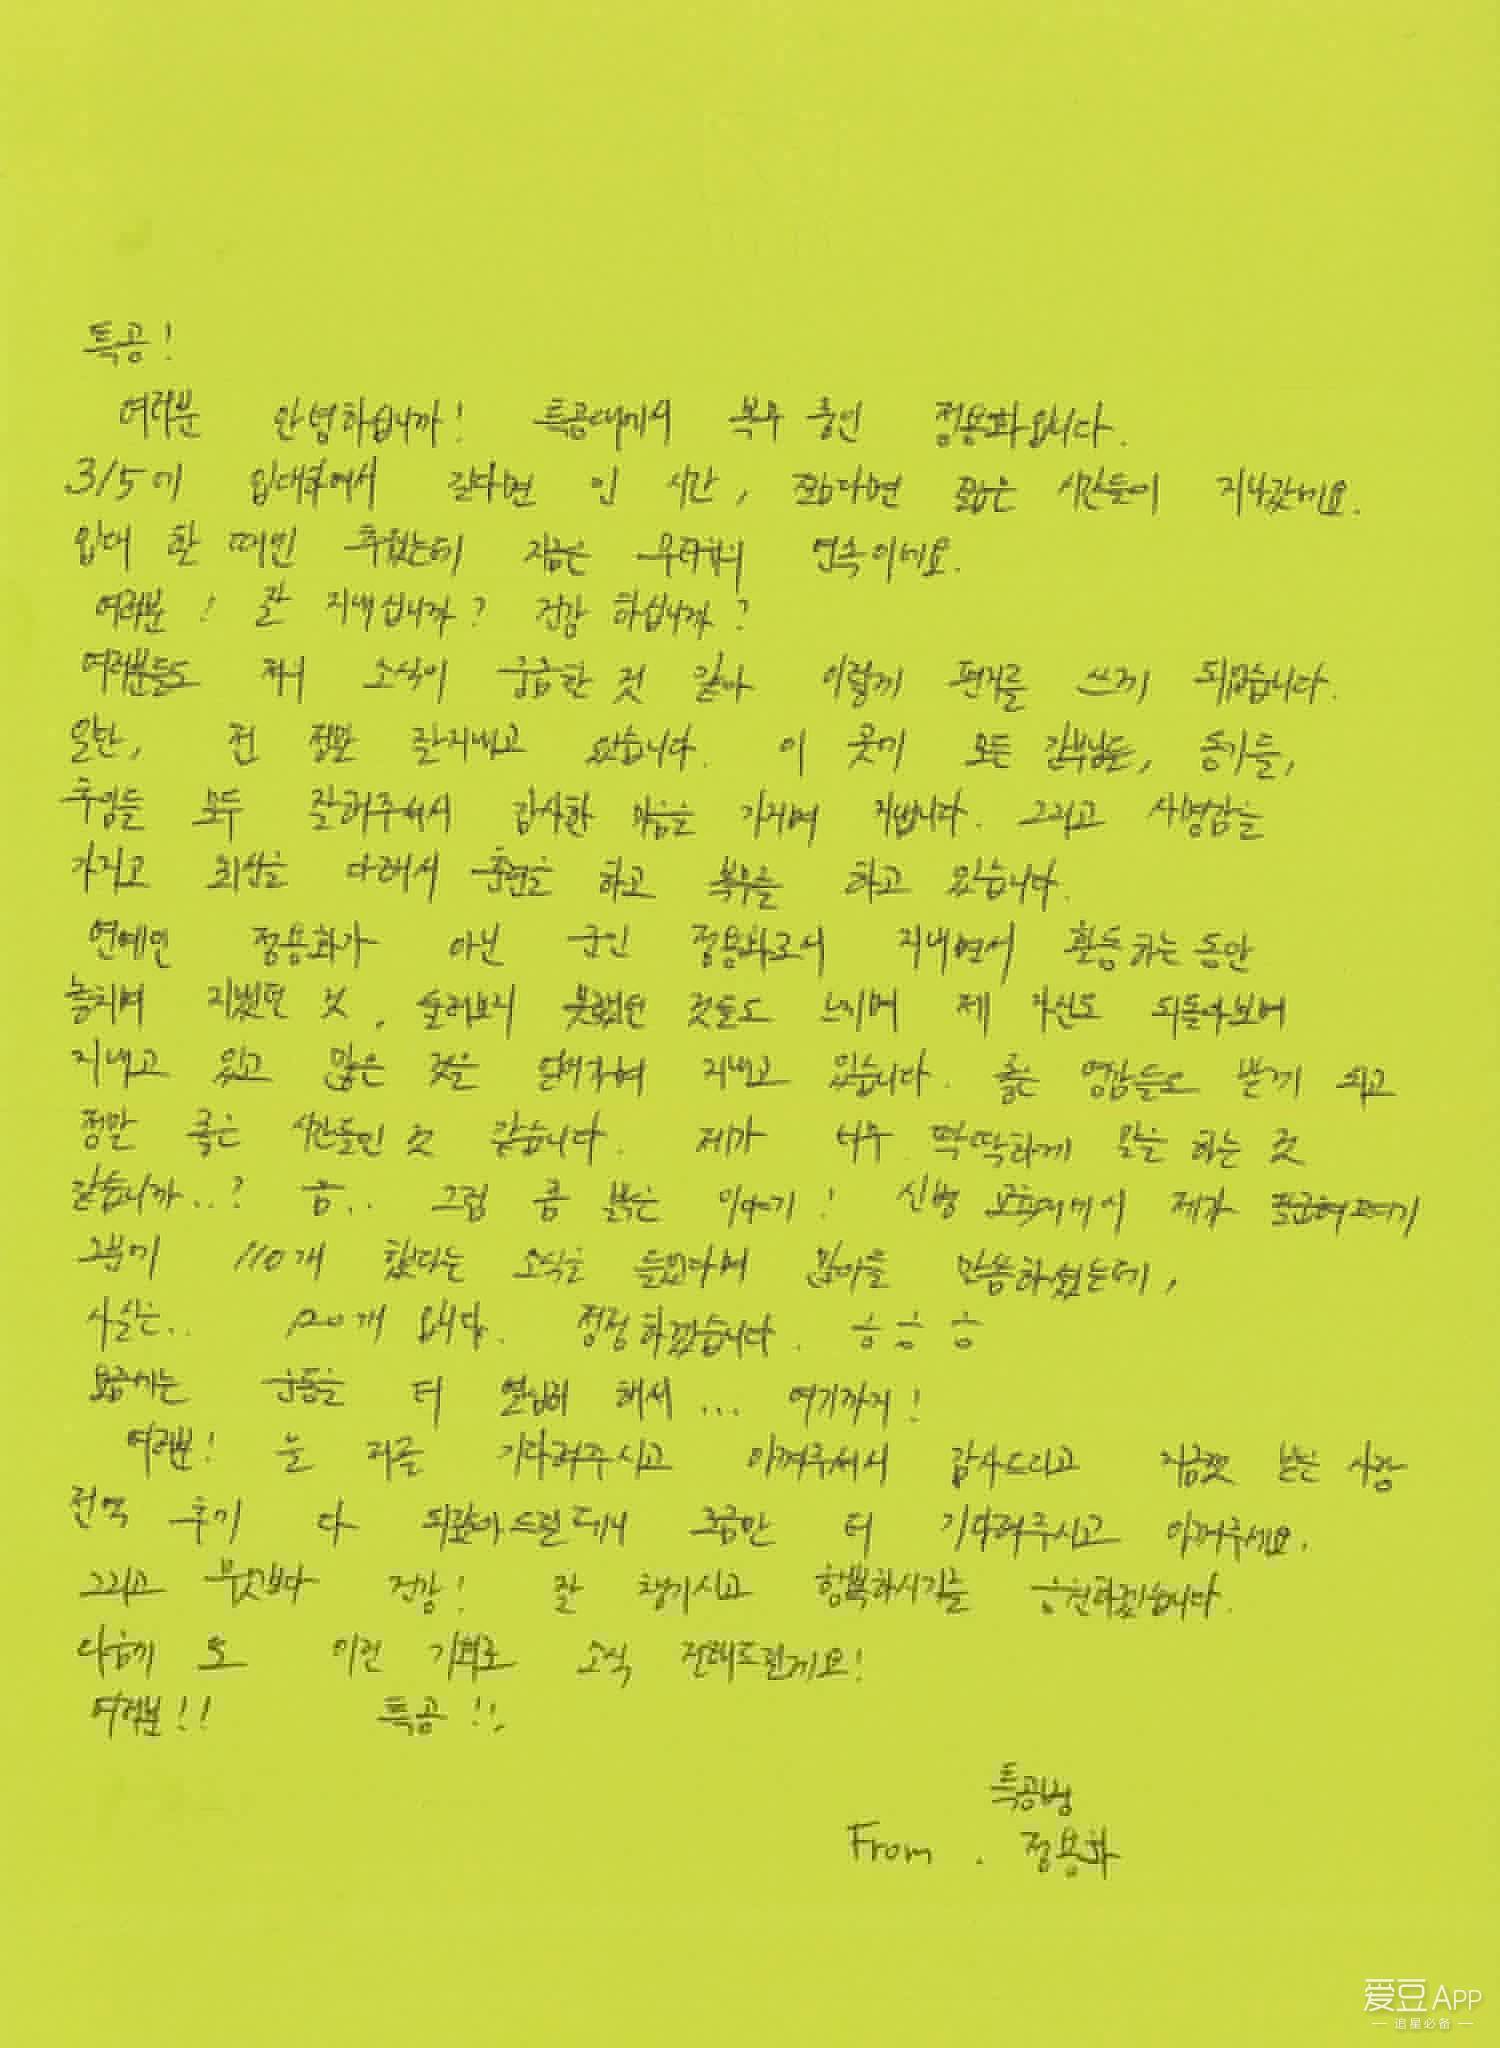 특공!
여러분 안녕하십니까! 특공대에서 복무 중인 정용화입니다.
3/5에 입대해서 길다면 긴 시간, 짧다면 짧은 시간들이 지나갔네요.
입대 할 때엔 추웠는데 지금은 무더위의 연속이네요.
여러분! 잘 지내십니까? 건강 하십니까?
여러분들도 저의 소식이 궁금한 것 같아 이렇게 편지를 쓰게 되었습니다.
일단, 전 정말 잘지내고 있습니다. 이 곳에 모든 간부님들, 동기들,
후임들 모두 잘해주셔서 감사한 마음을 가지며 지냅니다. 그리고 사명감을
가지고 최선을 다해서 훈련을 하고 복무를 하고 있습니다.
연예인 정용화가 아닌 군인 정용화로서 지내면서 활동하는 동안
놓치며 지냈던 것, 둘러보지 못했던 것들도 느끼며 제 자신도 되돌아보며
지내고 있고 많은 것을 일깨우며 지내고 있습니다. 좋은 영감들도 받게 되고
정말 좋은 시간들인 것 같습니다. 제가 너무 딱딱하게 말을 하는 것
같습니까..? 음.. 그럼 좀 밝은 이야기! 신병 교육대에서 제가 팔굽혀펴기
2분에 110개 했다는 소식을 들었다며 엄마를 만족하셨는데,
사실은.. 120개 입니다. 정정하겠습니다. 흐흐흐
요즘에는 운동을 더 열심히 해서... 여기까지!
여러분! 늘 저를 기다려주시고 아껴주셔서 감사드리고 지금껏 받은 사랑
전역 후에 다 되갚아드릴테니 조금만 더 기다려주시고 아껴주세요.
그리고 무엇보다 건강! 잘 챙기시고 행복하시기를 응원하겠습니다.
다음에 또 이런 기회로 소식 전해드릴게요!
여러분!! 특공!!
특공병
From. 정용화
爱豆APP
追星必备